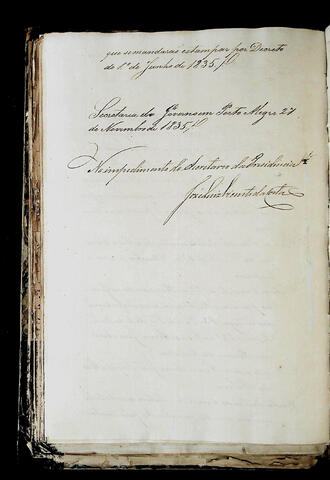 que se mandarão estampar por Decreto
do 1.º de Junho de 1835.
Secretaria do Governo em Porto Alegre 27
de Novembro de 1835.
No impedimento do Secretario da Presidencia
José Luiz da Costa